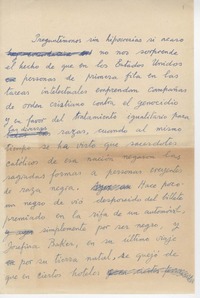 Preguntémonos sin hipocresías si acaso
no nos sorprende
el hecho de que en los Estados Unidos
personas de primera fila en las
tareas intelectuales emprendan campañas
de orden cristiano contra el genocidio
y en favor del tratamiento igualitario para
las diversas razas, cuando al mismo
tiempo se ha visto que sacerdotes
católicos de esa nación negaron las
sagradas formas a personas creyentes
de raza negra. Hace poco
un negro se vió desposeído del billete
premiado en la rifa de un automóvil,
simplemente por ser negro. Y
Josefina Baker, en su último viaje
por su tierra natal, se quejó de
que en ciertos hoteles